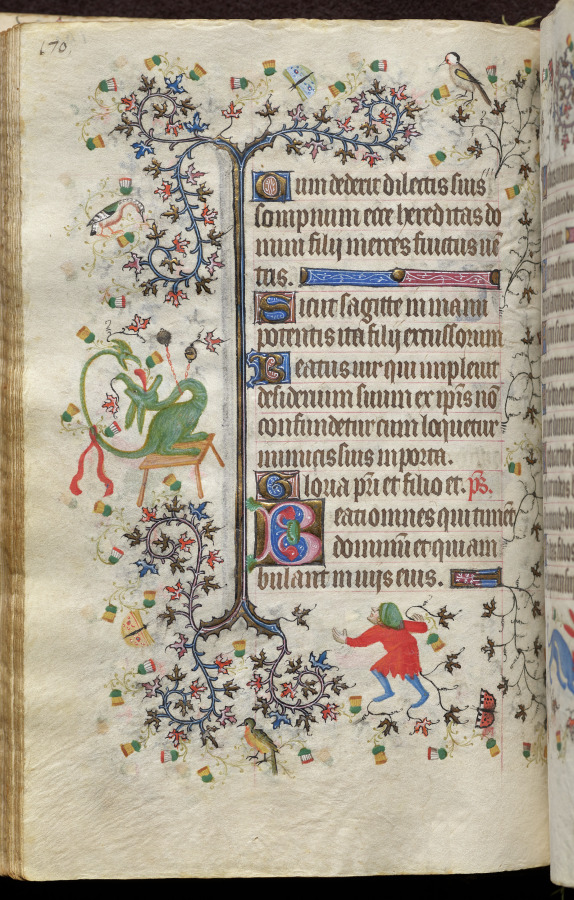 170
Cum dederit dilectis suis
sompnum ecce hereditas do
mini filij merces fructus uē
tris.
Sicut sagitte in manu
potentis ita filij excussorum
Beatus uir qui impleuit
desiderium suum ex ip̄is nō
confundetur cum loquetur
inimicis suis in porta.
Gloria pr̄i et filio et. p̄s.
Beati omnes qui timēt
dominū et qui am
bulant in uijs eius.